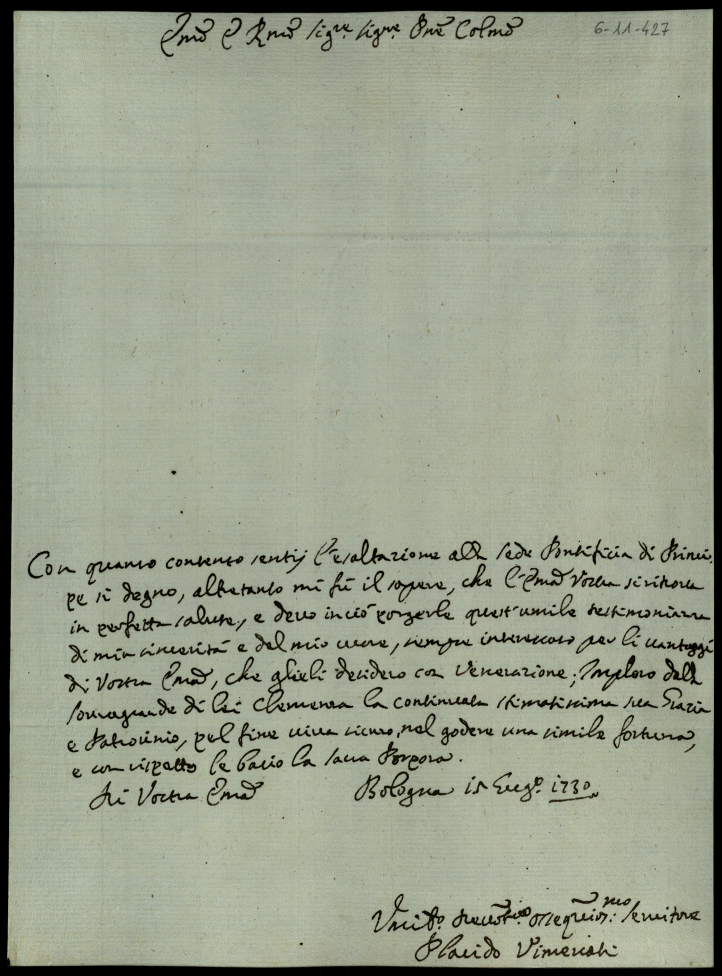 Emo e Rmo Sigre Sigre Pne Colmo
6-11-427
Con quanto contento sentij l'esaltazione alla sede Pontificia di Princi-
pe sì degno, altretanto mi fù il sapere, che l'Ema Vostra si ritrova
in perfetta salute, e devo in ciò porgerle quest'umile testimonianza
di mia sincerità e del mio cuore, sempre interessato per li vantaggi
di Vostra Ema, che glieli desidero con venerazione; Imploro dalla
somagrande di lei Clemenza la continuata stimatissima sua Grazia
e Patrocinio, pel fine viva sicuro, nel godere una simile fortuna,
e con rispetto le bacio la sacra Porpora.
Di Vostra Ema Bologna 15 1730
Umilo ossequiosmo Servitore
Placido